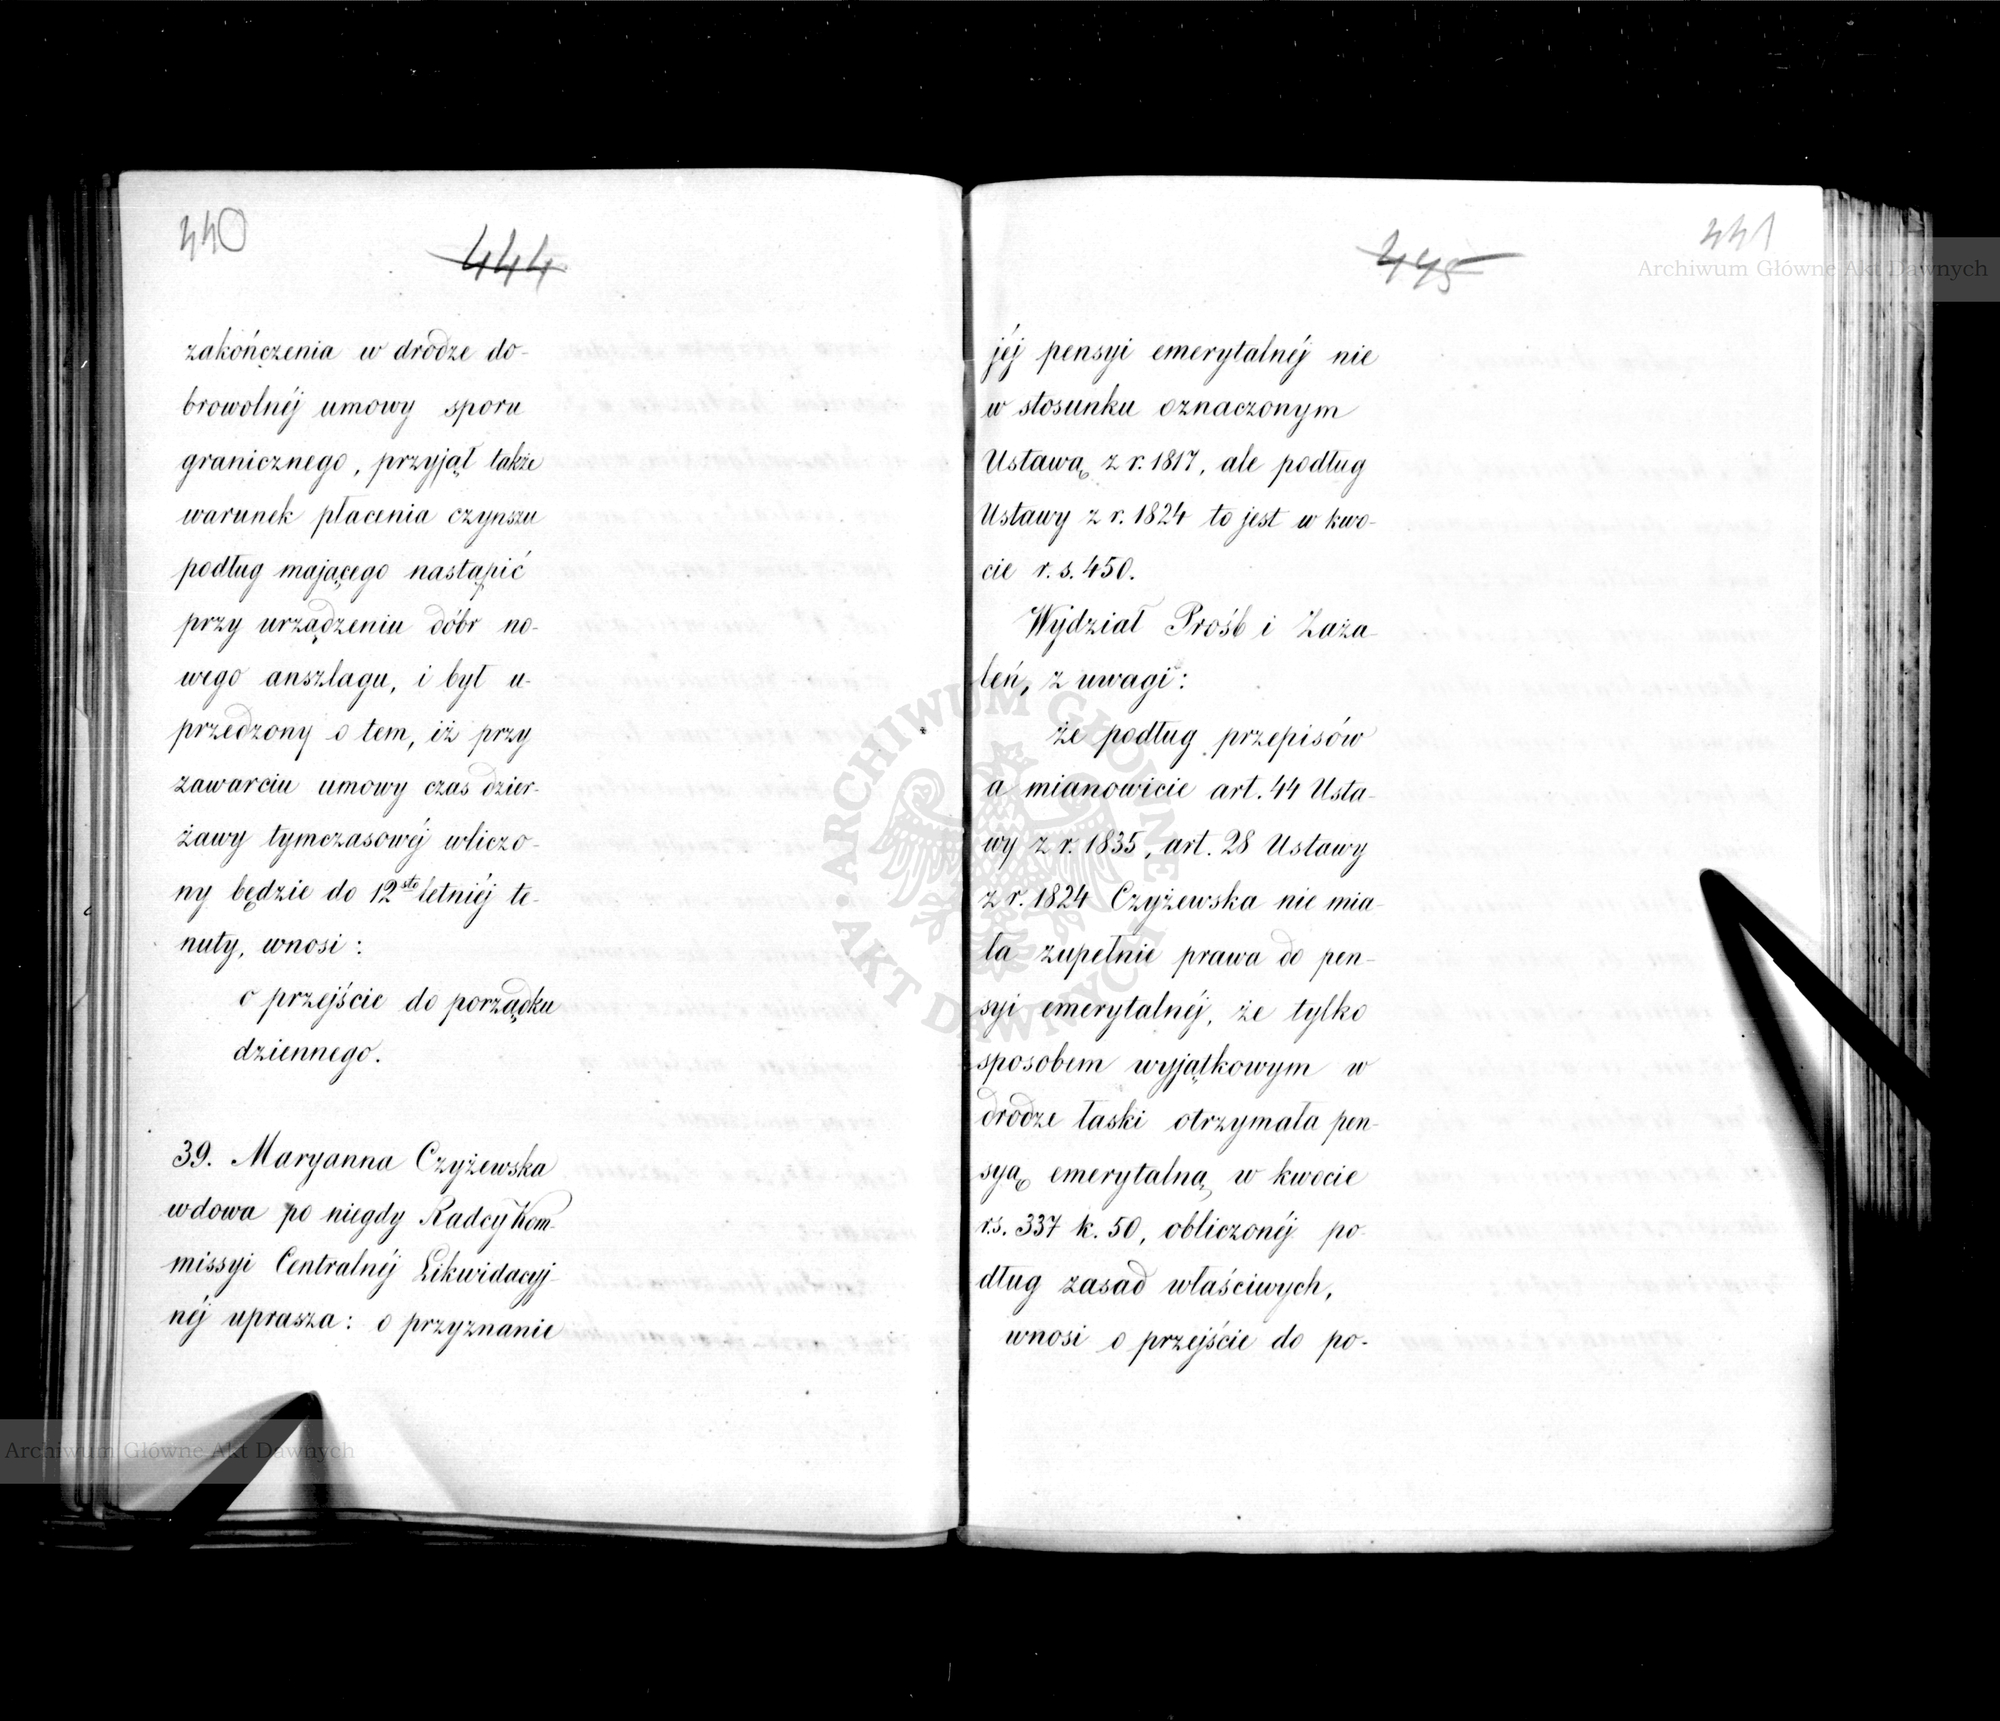 440
444
zakończenia w drodze do-
browolnéj umowy sporu
granicznego, przyjął także
warunek płacenia czynszu
podług mającego nastąpić
przy urządzeniu dóbr no-
wego anszlagu, i był u-
przedzony o tem, iż przy
zawarciu umowy czas dzier-
żawy tymczasowéj wliczo-
ny będzie do 12sto letniéj te-
nuty, wnosi:
o przejście do porządku
dziennego.
39. Maryanna Czyżewska
wdowa po niegdy Radcy Kom-
missyi Centralnéj Likwidacyj-
néj uprasza: o przyznanie
441
445
jéj pensyi emerytalnéj nie
w stosunku oznaczonym
Ustawą z r. 1817, ale podług
Ustawy z r. 1824 to jest w kwo-
cie r. s. 450.
Wydział Prośb i Zaża-
leń, z uwagi:
że podług przepisów
a mianowicie art. 44 Usta-
wy z r. 1835, art. 28 Ustawy
z r. 1824 Czyżewska nie mia-
ła zupełnie prawa do pen-
syi emerytalnéj, że tylko
sposobem wyjątkowym w
drodze łaski otrzymała pen-
syą emerytalną w kwocie
rs. 337 k. 50, obliczonéj po-
dług zasad właściwych,
wnosi o przejście do po-
Archiwum Główne Akt Dawnych
Archiwum Główne Akt Dawnych
ARCHIWUM GŁÓWNE AKT DAWNYCH